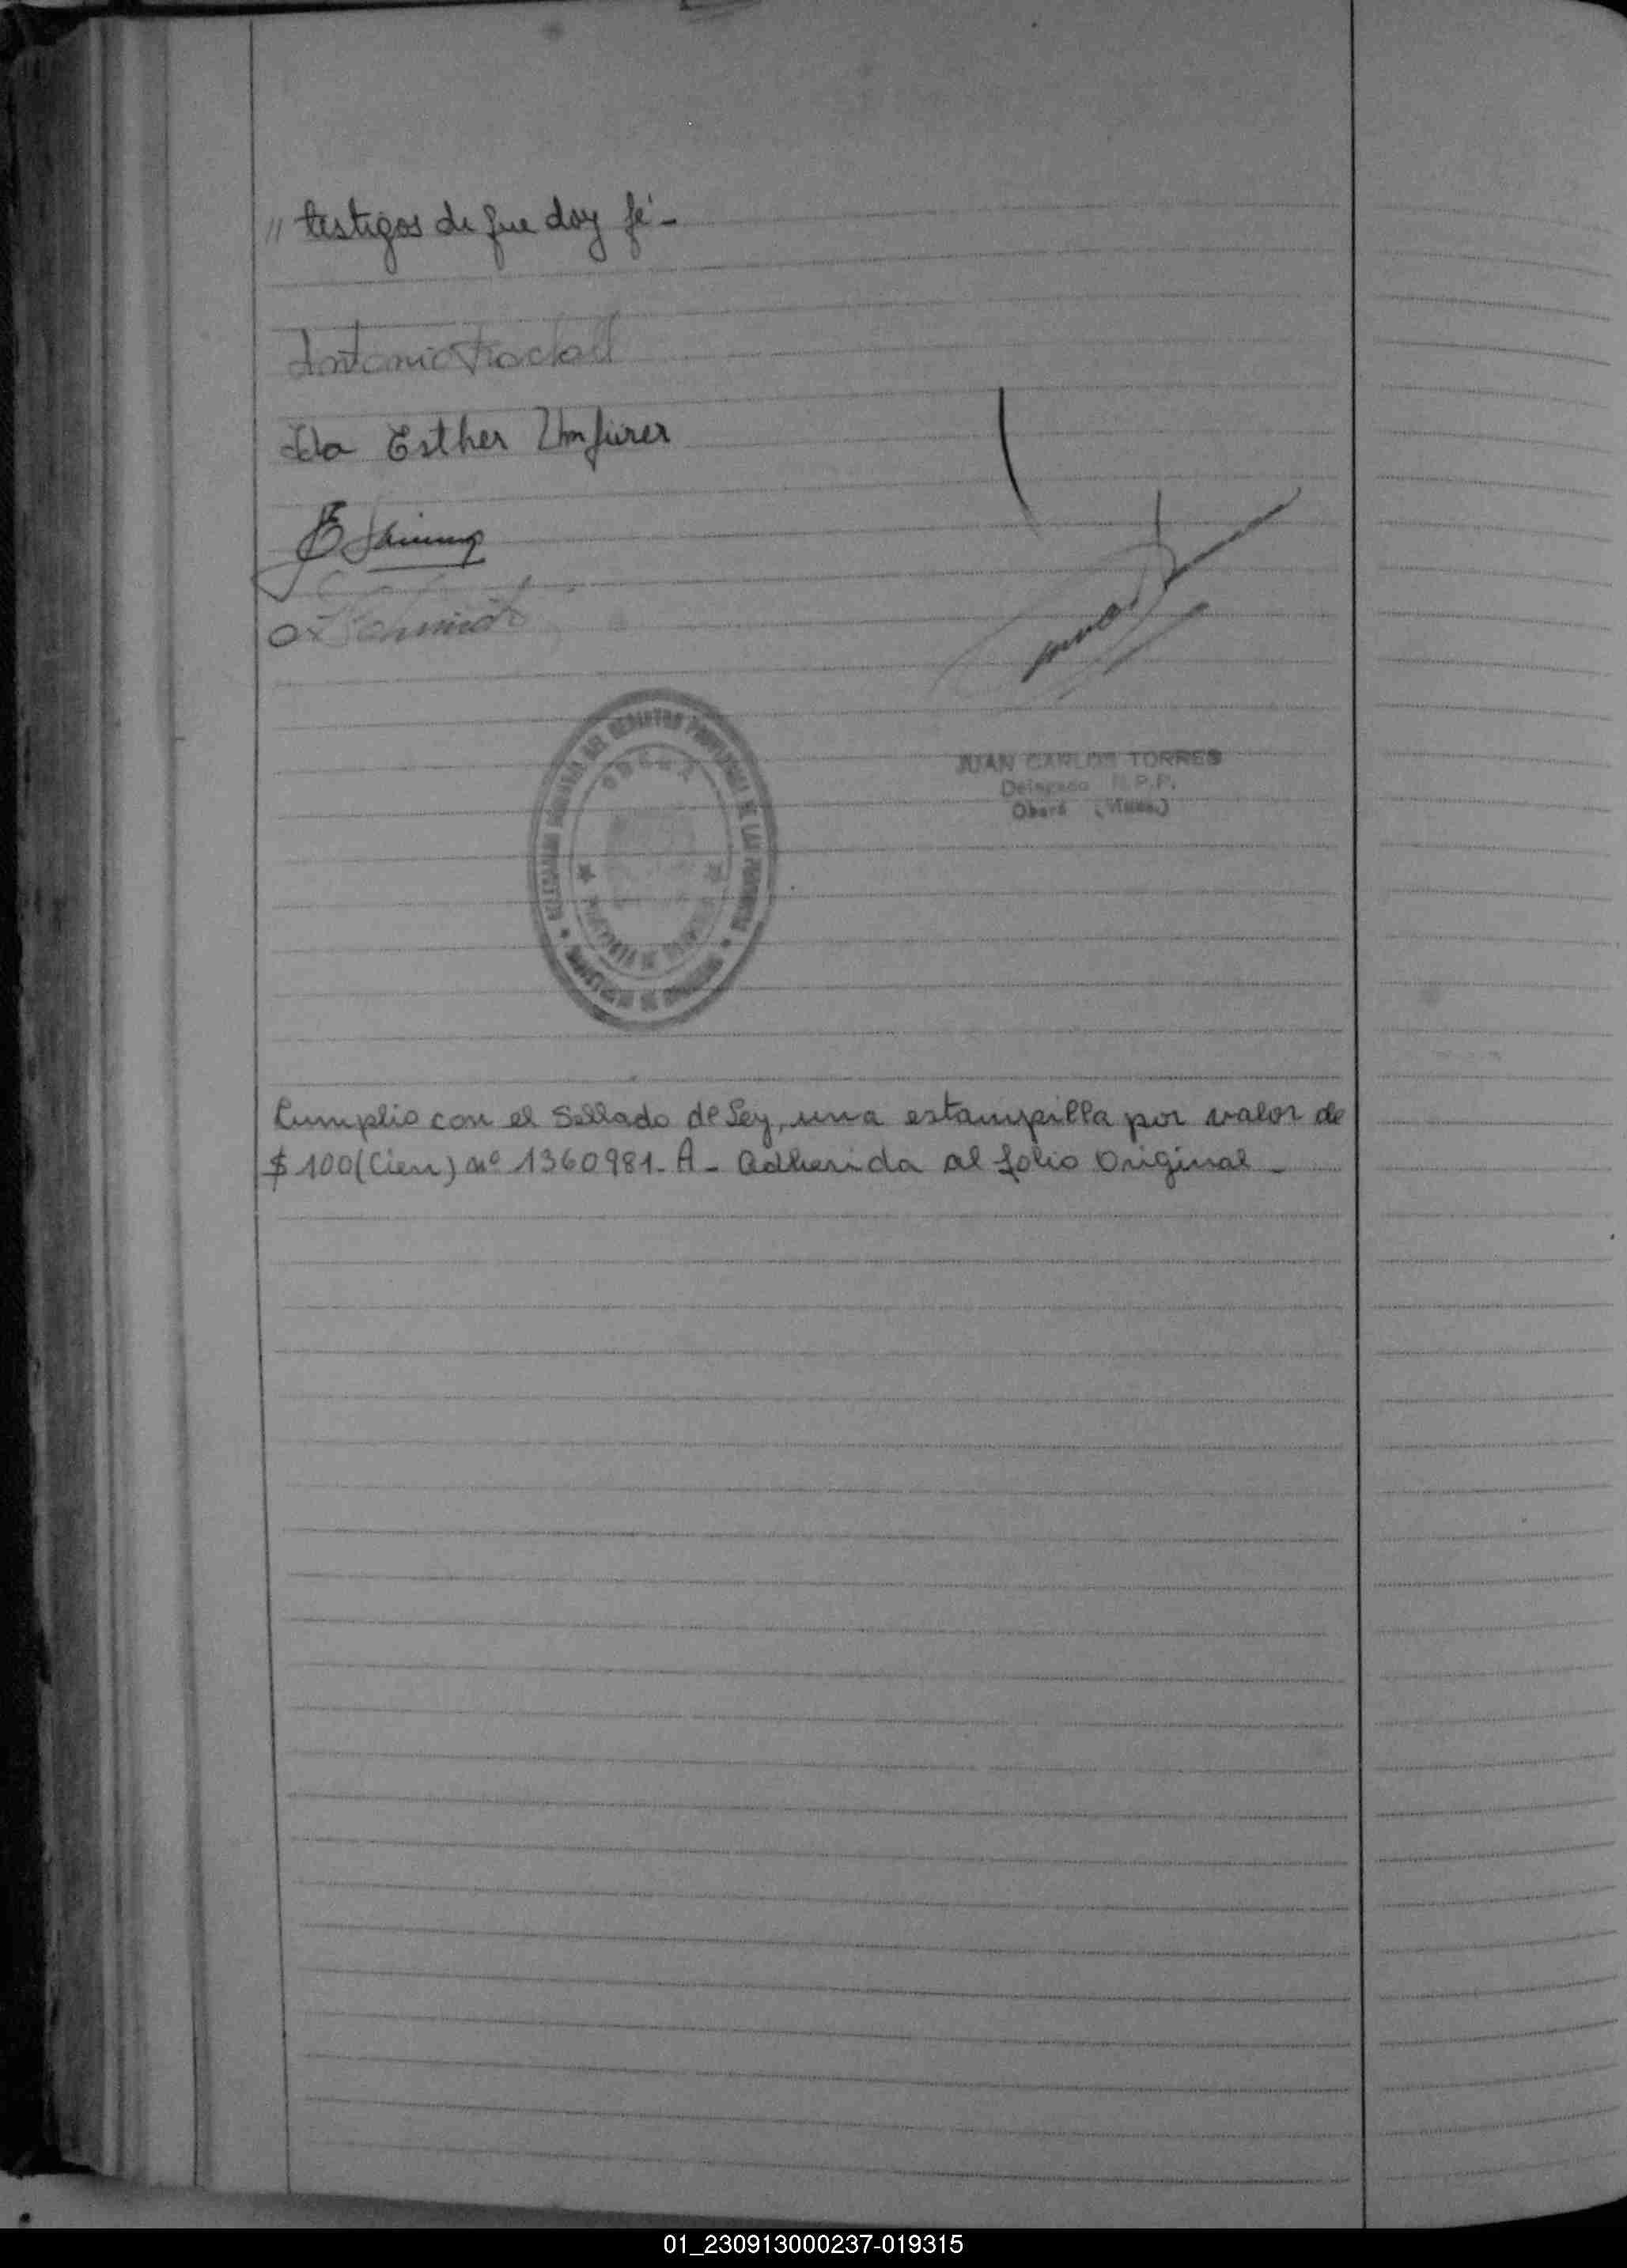 " testigos de que doy fé -
Antonio
Ida Esther Umfürer
Schmidt
OBERA
JUAN CARLOS TORRES
Delegado R.P.P.
Oberá (Mnes)
Cumplio con el Sellado de Ley, una estampilla por valor de
$ 100 (Cien) nº 1360981 - A - Adherida al folio Original -
01_230913000237-019315